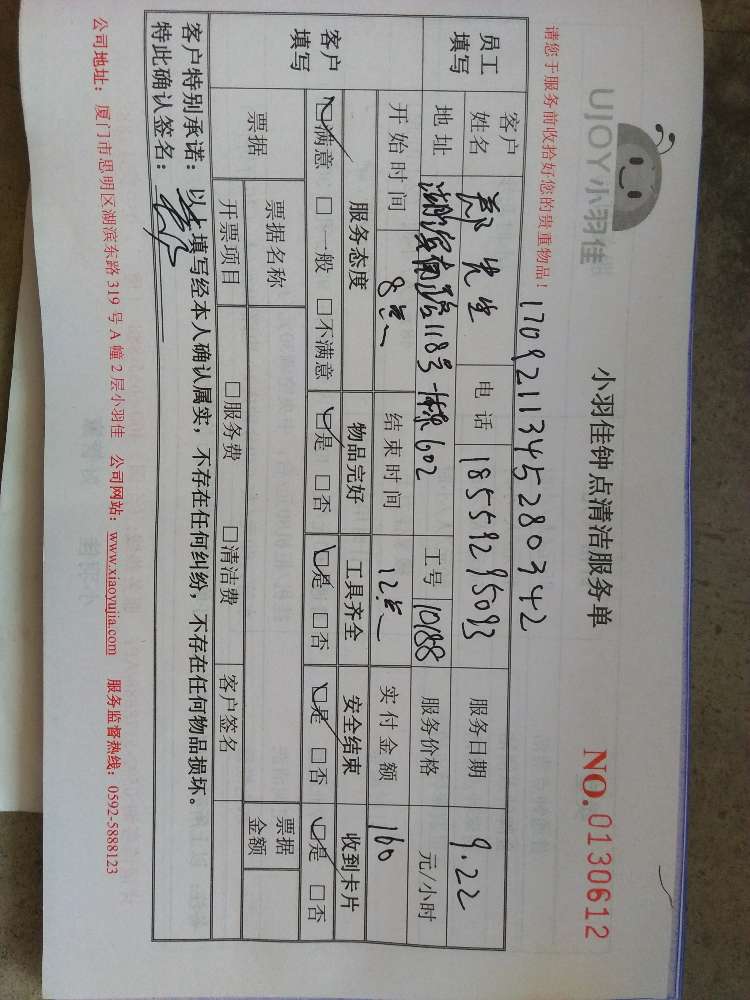 UJOY小羽佳
小羽佳钟点清洁服务单
NO. 0130612
请您于服务前收拾好您的贵重物品！
1709211345280342
员工填写
客户姓名 郑先生 电话 18559295093 服务日期 9.22
地址 湖滨南路118号 602 工号 10188 服务价格 元/小时
开始时间 8点 结束时间 12点 实付金额 160
客户填写
服务态度 物品完好 工具齐全 安全结束 收到卡片
☑满意 □一般 □不满意 ☑是 □否 ☑是 □否 ☑是 □否 ☑是 □否
票据 票据名称 票据金额
开票项目 □服务费 □清洁费 客户签名
客户特别承诺：以上填写经本人确认属实，不存在任何纠纷，不存在任何物品损坏。
特此确认签名：
公司地址：厦门市思明区湖滨东路319号A幢2层小羽佳 公司网站：www.xiaoyujia.com 服务监督热线：0592-5888123